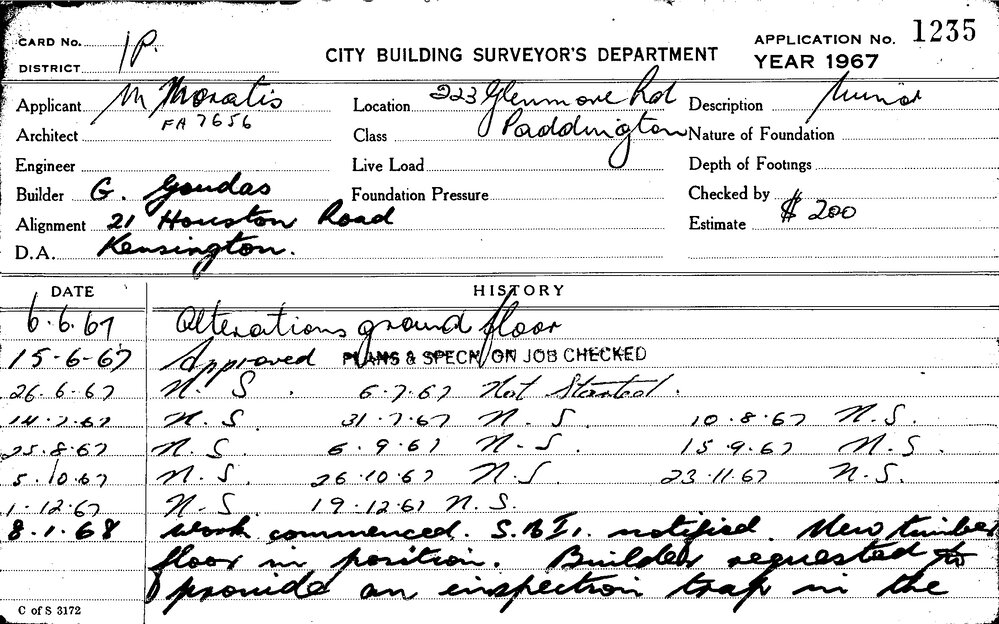 CARD No. 1P.
DISTRICT
CITY BUILDING SURVEYOR'S DEPARTMENT
APPLICATION No. 1235
YEAR 1967
Applicant M Moratis Location 223 Glenmore Rd Description Minor
FA 7656
Architect Class Paddington Nature of Foundation
Engineer Live Load Depth of Footings
Builder G. Goudas Foundation Pressure Checked by
Alignment 21 Houston Road Estimate $ 200
D.A. Kensington.
DATE HISTORY
6.6.67 Alterations ground floor
15-6-67 Approved PLANS & SPECN, ON JOB CHECKED
26.6-67 N. S . 6-7.67 Not Started.
14.7.67 N. S 31.7.67 N. S. 10.8.67 N.S.
25.8.67 N.S 6.9.67 N-S. 15.9.67 N.S.
5.10.67 N.S 26.10.67 N.S. 23.11.67 N.S.
1.12.67 N.S. 19.12.67 N.S.
8.1.68 Work commenced. S.B.I. notified. New timber
floor in position. Builder requested to
provide an inspection trap in the
C of S 3172